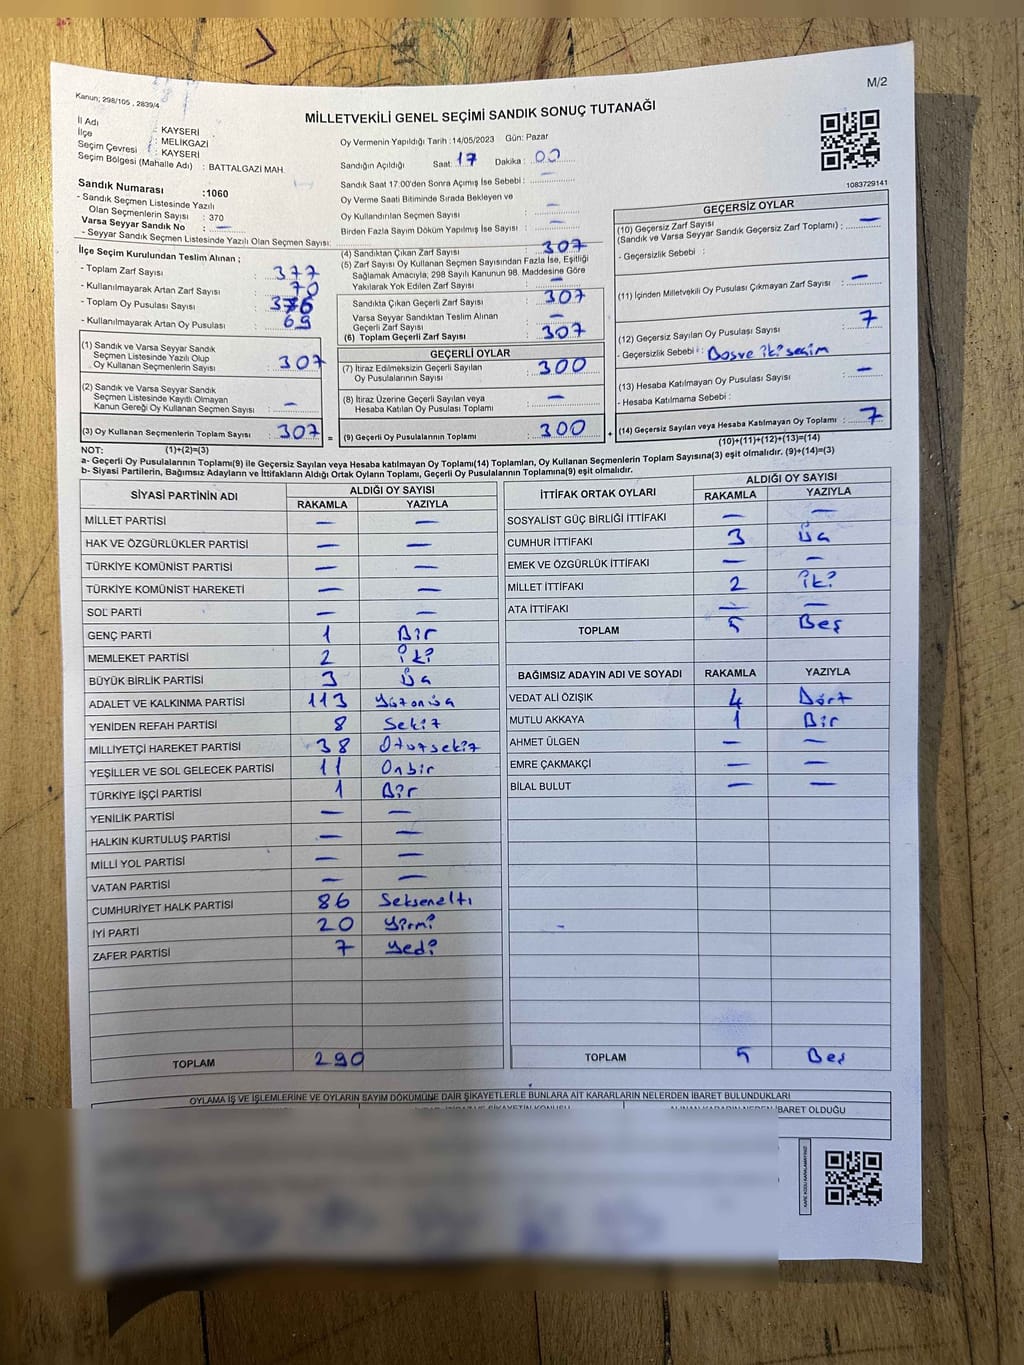 M/2
Kanun; 298/105 , 2839/4
MİLLETVEKİLİ GENEL SEÇİMİ SANDIK SONUÇ TUTANAĞI
İl Adı : KAYSERİ
İlçe : MELİKGAZİ
Seçim Çevresi : KAYSERİ
Seçim Bölgesi (Mahalle Adı) : BATTALGAZİ MAH.
Sandık Numarası :1060
- Sandık Seçmen Listesinde Yazılı
Olan Seçmenlerin Sayısı : 370
Varsa Seyyar Sandık No : —
- Seyyar Sandık Seçmen Listesinde Yazılı Olan Seçmen Sayısı:
Oy Vermenin Yapıldığı Tarih :14/05/2023 Gün: Pazar
Sandığın Açıldığı Saat: 17 Dakika : 00
Sandık Saat 17:00'den Sonra Açımış İse Sebebi : —
Oy Verme Saati Bitiminde Sırada Bekleyen ve
Oy Kullandırılan Seçmen Sayısı : —
Birden Fazla Sayım Döküm Yapılmış İse Sayısı : —
1083729141
İlçe Seçim Kurulundan Teslim Alınan ;
- Toplam Zarf Sayısı : 377
- Kullanılmayarak Artan Zarf Sayısı : 70
- Toplam Oy Pusulası Sayısı : 376
- Kullanılmayarak Artan Oy Pusulası : 69
(1) Sandık ve Varsa Seyyar Sandık
Seçmen Listesinde Yazılı Olup
Oy Kullanan Seçmenlerin Sayısı : 307
(2) Sandık ve Varsa Seyyar Sandık
Seçmen Listesinde Kayıtlı Olmayan
Kanun Gereği Oy Kullanan Seçmen Sayısı : —
(3) Oy Kullanan Seçmenlerin Toplam Sayısı : 307
(4) Sandıktan Çıkan Zarf Sayısı : 307
(5) Zarf Sayısı Oy Kullanan Seçmen Sayısından Fazla İse, Eşitliği
Sağlamak Amacıyla; 298 Sayılı Kanunun 98. Maddesine Göre
Yakılarak Yok Edilen Zarf Sayısı : —
Sandıkta Çıkan Geçerli Zarf Sayısı : 307
Varsa Seyyar Sandıktan Teslim Alınan
Geçerli Zarf Sayısı : —
(6) Toplam Geçerli Zarf Sayısı : 307
GEÇERLİ OYLAR
(7) İtiraz Edilmeksizin Geçerli Sayılan
Oy Pusulalarının Sayısı : 300
(8) İtiraz Üzerine Geçerli Sayılan veya
Hesaba Katılan Oy Pusulası Toplamı : —
= (9) Geçerli Oy Pusulalarının Toplamı : 300
GEÇERSİZ OYLAR
(10) Geçersiz Zarf Sayısı
(Sandık ve Varsa Seyyar Sandık Geçersiz Zarf Toplamı) : —
- Geçersizlik Sebebi :
(11) İçinden Milletvekili Oy Pusulası Çıkmayan Zarf Sayısı : —
(12) Geçersiz Sayılan Oy Pusulası Sayısı : 7
- Geçersizlik Sebebi : Boş ve iki seçim
(13) Hesaba Katılmayan Oy Pusulası Sayısı : —
- Hesaba Katılmama Sebebi :
+ (14) Geçersiz Sayılan veya Hesaba Katılmayan Oy Toplamı : 7
NOT: (1)+(2)=(3) (10)+(11)+(12)+(13)=(14)
a- Geçerli Oy Pusulalarının Toplamı(9) ile Geçersiz Sayılan veya Hesaba katılmayan Oy Toplamı(14) Toplamları, Oy Kullanan Seçmenlerin Toplam Sayısına(3) eşit olmalıdır. (9)+(14)=(3)
b- Siyasi Partilerin, Bağımsız Adayların ve İttifakların Aldığı Ortak Oyların Toplamı, Geçerli Oy Pusulalarının Toplamına(9) eşit olmalıdır.
SİYASİ PARTİNİN ADI ALDIĞI OY SAYISI
RAKAMLA YAZIYLA
MİLLET PARTİSİ — —
HAK VE ÖZGÜRLÜKLER PARTİSİ — —
TÜRKİYE KOMÜNİST PARTİSİ — —
TÜRKİYE KOMÜNİST HAREKETİ — —
SOL PARTİ — —
GENÇ PARTİ 1 Bir
MEMLEKET PARTİSİ 2 İki
BÜYÜK BİRLİK PARTİSİ 3 Üç
ADALET VE KALKINMA PARTİSİ 113 Yüzonüç
YENİDEN REFAH PARTİSİ 8 Sekiz
MİLLİYETÇİ HAREKET PARTİSİ 38 Otuzsekiz
YEŞİLLER VE SOL GELECEK PARTİSİ 11 Onbir
TÜRKİYE İŞÇİ PARTİSİ 1 Bir
YENİLİK PARTİSİ — —
HALKIN KURTULUŞ PARTİSİ — —
MİLLİ YOL PARTİSİ — —
VATAN PARTİSİ — —
CUMHURİYET HALK PARTİSİ 86 Seksenaltı
İYİ PARTİ 20 Yirmi
ZAFER PARTİSİ 7 Yedi
TOPLAM 290
İTTİFAK ORTAK OYLARI ALDIĞI OY SAYISI
RAKAMLA YAZIYLA
SOSYALİST GÜÇ BİRLİĞİ İTTİFAKI — —
CUMHUR İTTİFAKI 3 Üç
EMEK VE ÖZGÜRLÜK İTTİFAKI — —
MİLLET İTTİFAKI 2 İki
ATA İTTİFAKI — —
TOPLAM 5 Beş
BAĞIMSIZ ADAYIN ADI VE SOYADI RAKAMLA YAZIYLA
VEDAT ALİ ÖZIŞIK 4 Dört
MUTLU AKKAYA 1 Bir
AHMET ÜLGEN — —
EMRE ÇAKMAKÇİ — —
BİLAL BULUT — —
TOPLAM 5 Beş
OYLAMA İŞ VE İŞLEMLERİNE VE OYLARIN SAYIM DÖKÜMÜNE DAİR ŞİKAYETLERLE BUNLARA AİT KARARLARIN NELERDEN İBARET BULUNDUKLARI
İBARET OLDUĞU